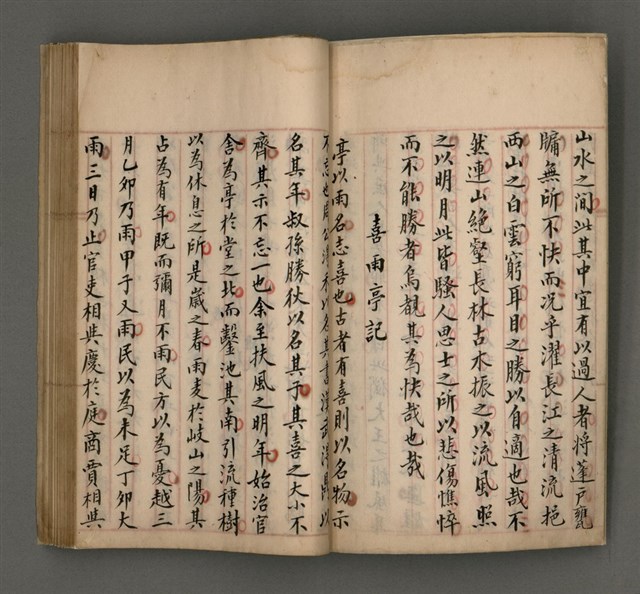 山水之間此其中宜有以過人者將蓬戶甕
牖無所不快而况乎濯長江之清流挹
西山之白雲窮耳目之勝以自適也哉不
然連山絕壑長林古木振之以流風照
之以明月此皆騷人思士之所以悲傷憔悴
而不能勝者烏覩其為快哉也哉
喜雨亭記
亭以雨名志喜也古者有喜則以名物示
不忘也周公得禾以名其書漢武得鼎以
名其年叔孫勝狄以名其子其喜之大小不
齊其示不忘一也余至扶風之明年始治官
舍為亭於堂之北而鑿池其南引流種樹
以為休息之所是歲之春雨麦於岐山之陽其
占為有年既而彌月不雨民方以為憂越三
月乙卯乃雨甲子又雨民以為未足丁卯大
雨三日乃止官吏相與慶於庭商賈相與